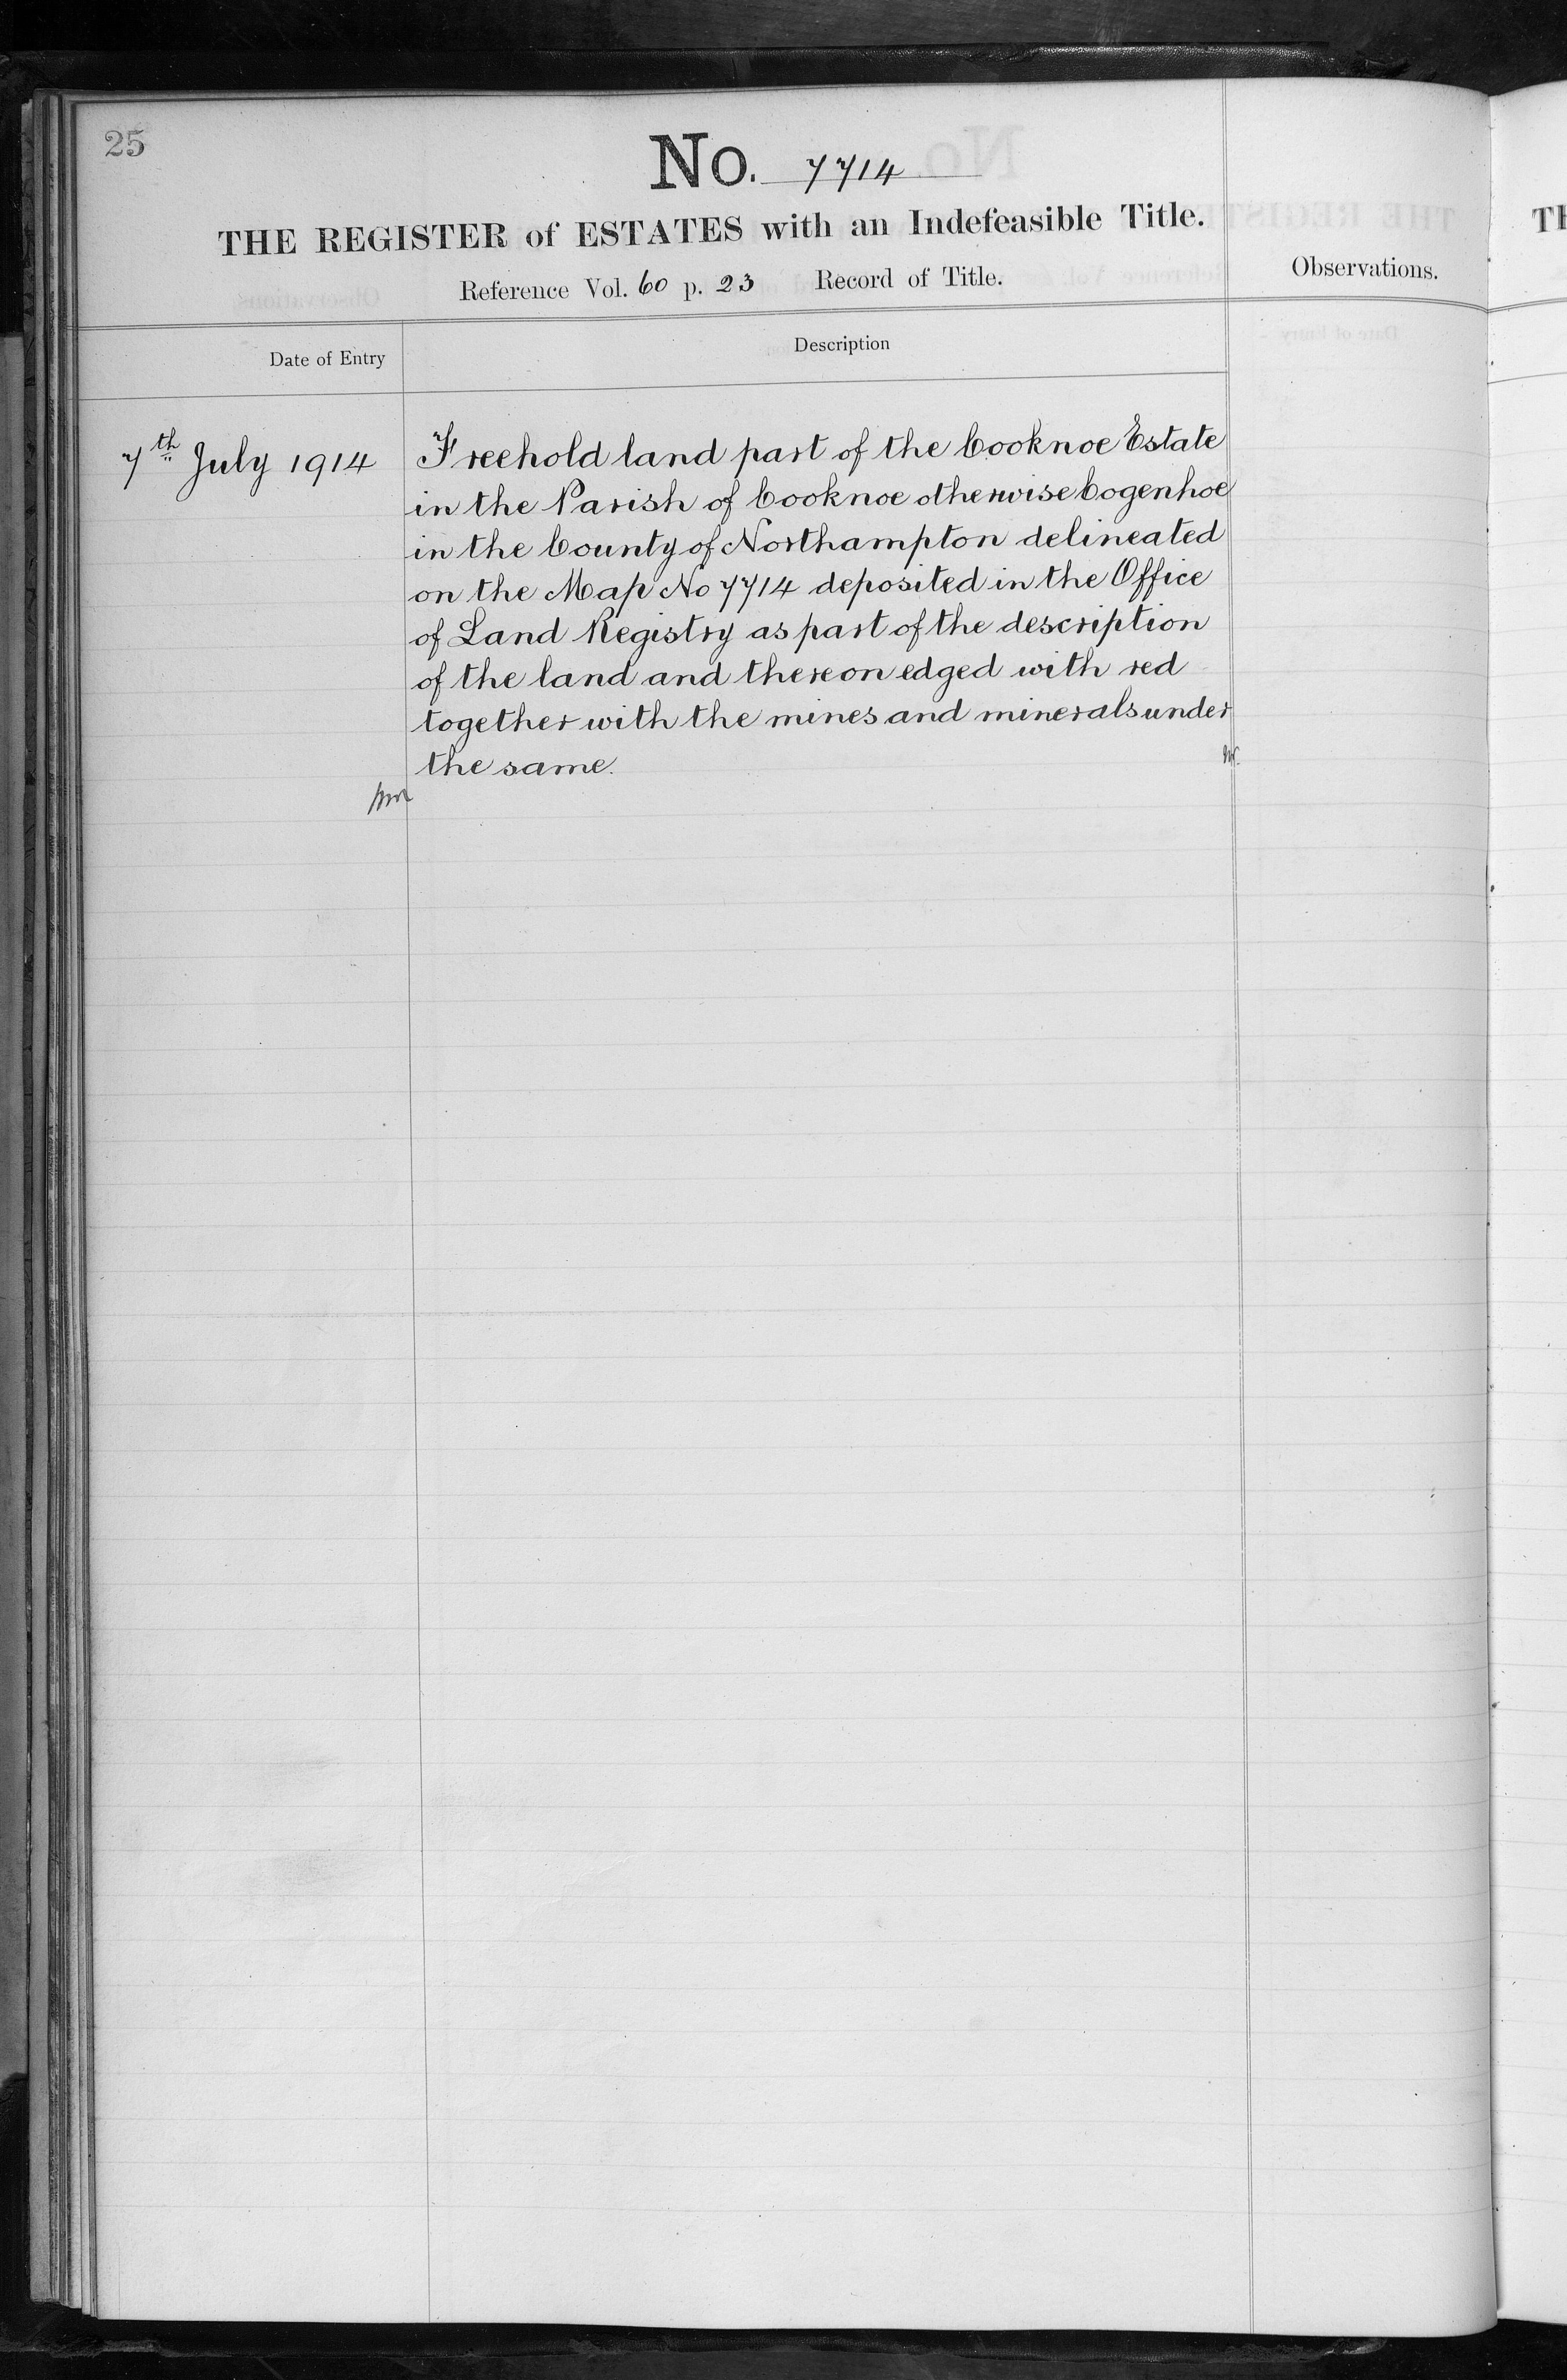 25
No. 7714
THE REGISTER of ESTATES with an Indefeasible Title.
Reference Vol. 60 p. 23 Record of Title.
Observations.
Date of Entry
Description
7th July 1914
Freehold land part of the Cooknoe Estate
in the Parish of Cooknoe otherwise Cogenhoe
in the County of Northampton delineated
on the Map No 7714 deposited in the Office
of Land Registry as part of the description
of the land and thereon edged with red
together with the mines and minerals under
the same.